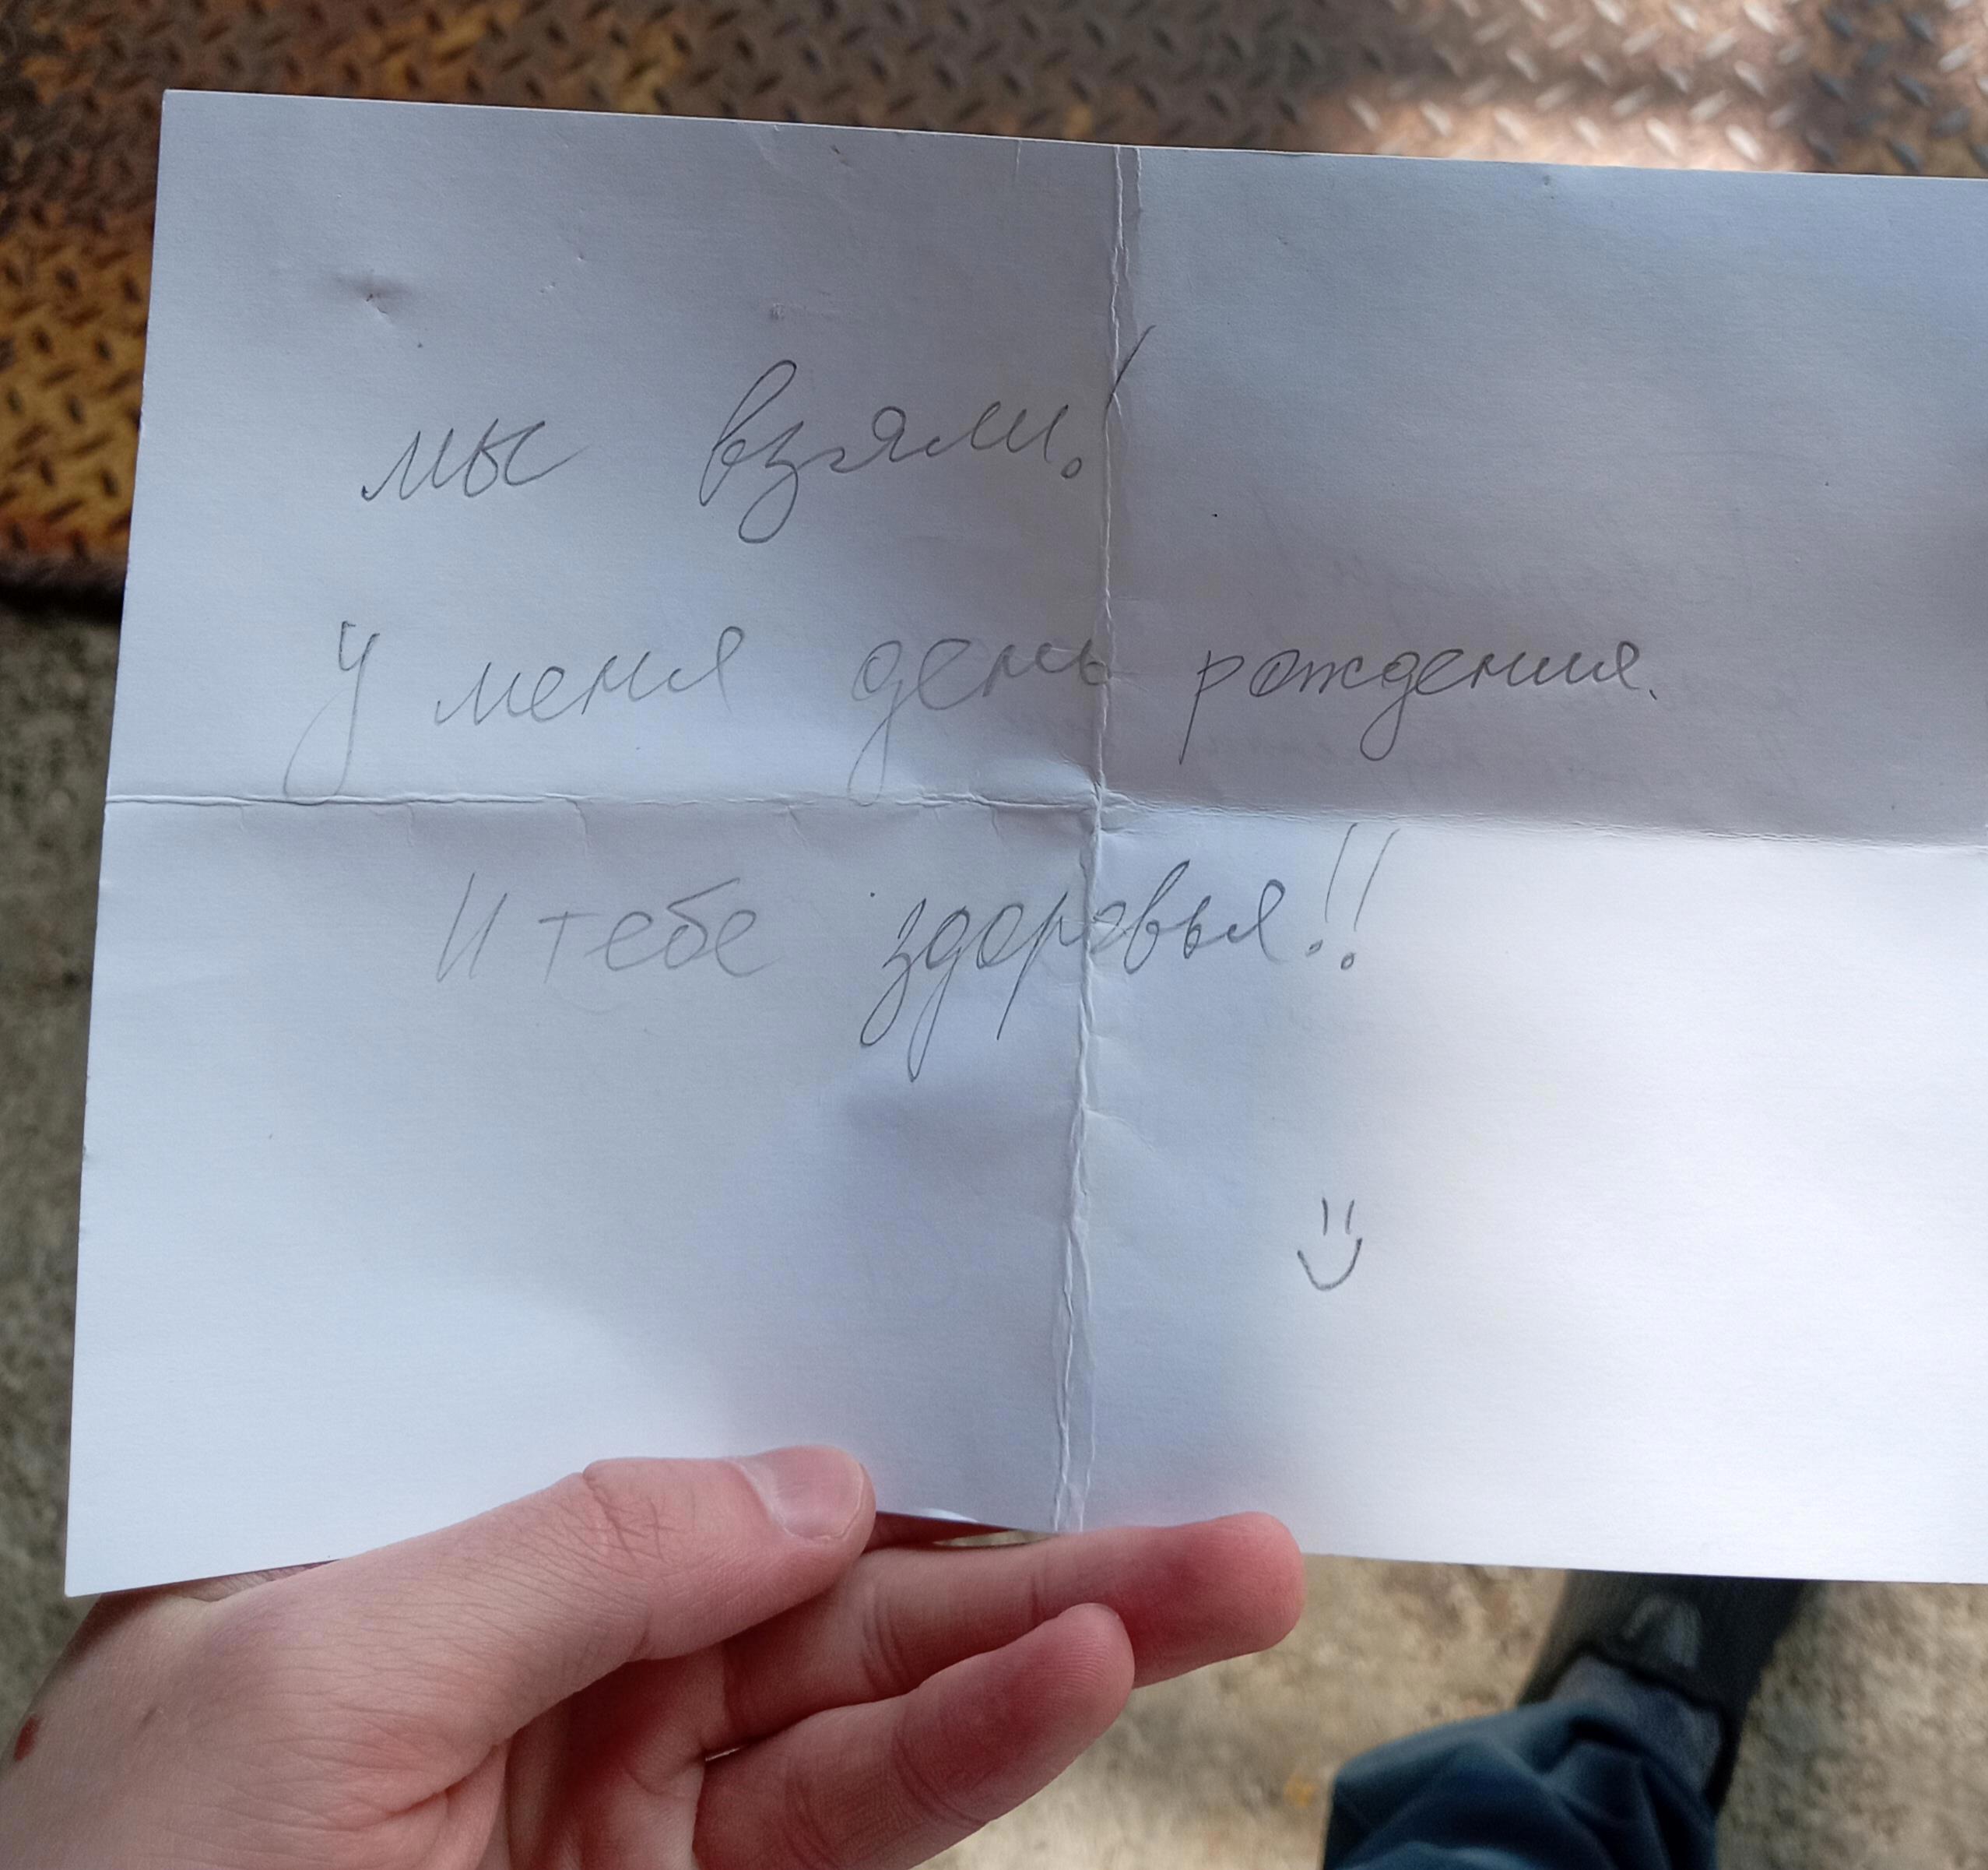 мы взяли!
У меня день рождения.
И тебе здоровья!!